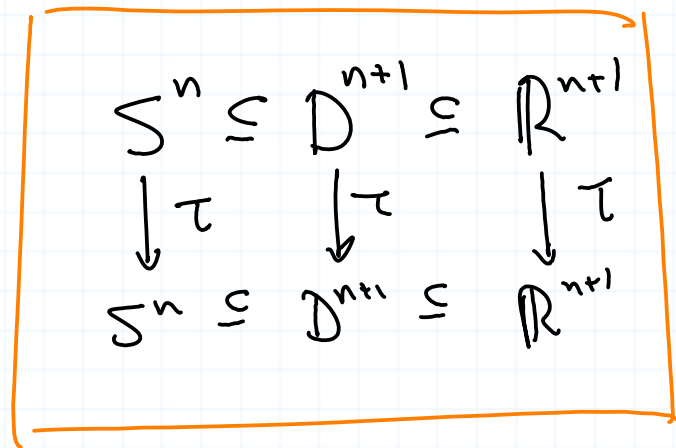 Sⁿ ⊆ Dⁿ⁺¹ ⊆ ℝⁿ⁺¹
↓ τ ↓ τ ↓ τ
Sⁿ ⊆ Dⁿ⁺¹ ⊆ ℝⁿ⁺¹